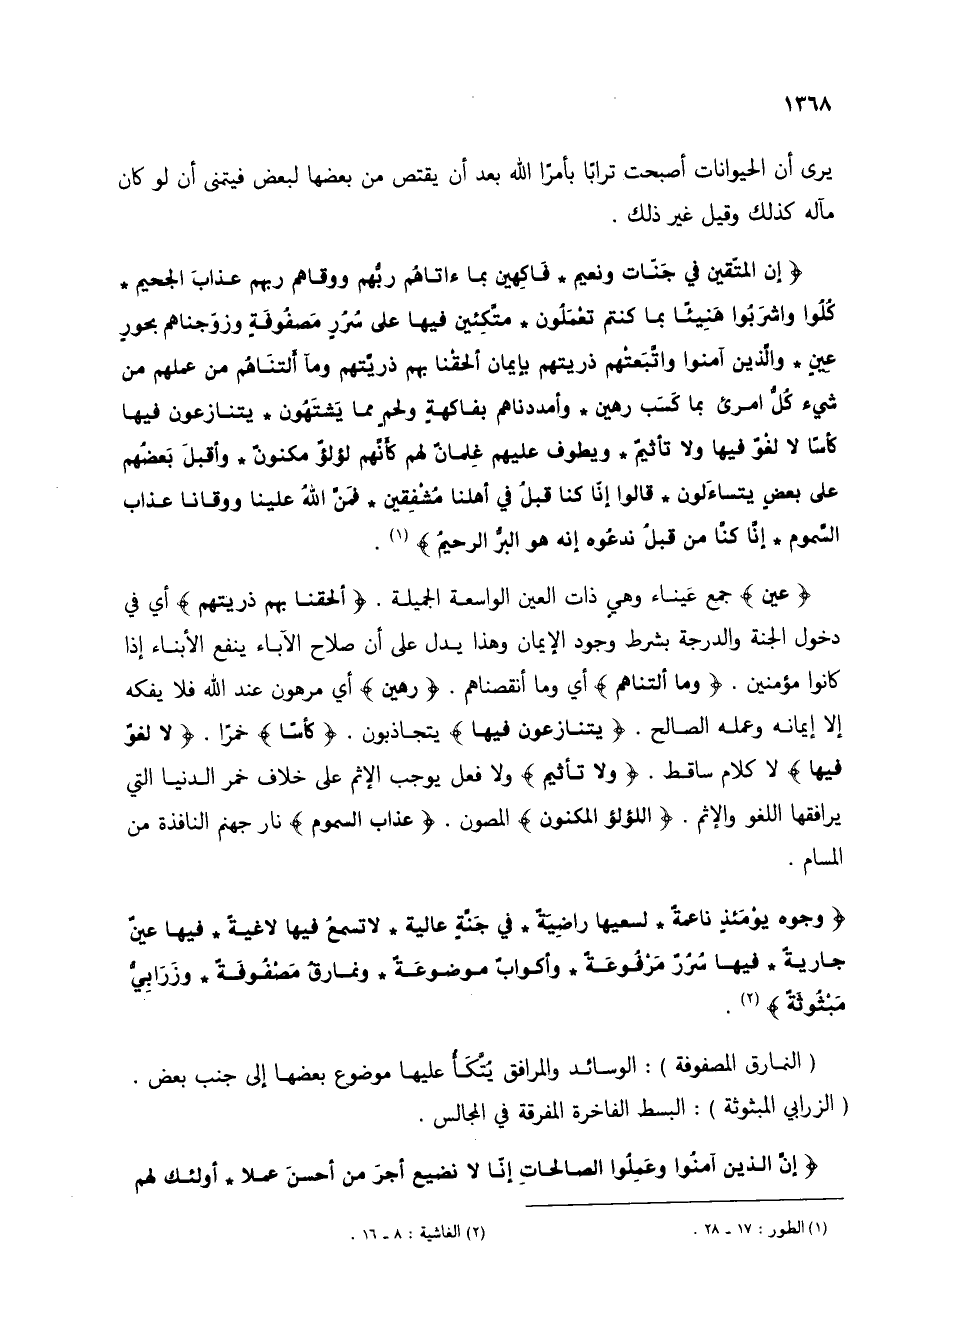 ١٣٦٨
يرى أن الحيوانات أصبحت ترابًا بأمرًا الله بعد أن يقتص من بعضها لبعض فيتمنى أن لو كان
مآله كذلك وقيل غير ذلك .
﴿ إن المتّقين في جَنّات ونعيم * فَاكِهين بما ءاتاهُم ربُّهم ووقاهم ربهم عذابَ الجحيم *
كُلُوا واشرَبُوا هَنِيئًا بما كنتم تعْمَلُون * متّكِئين فيها على سُرُرٍ مَصفُوفَةٍ وزوّجناهم بحورٍ
عينٍ * والَّذين آمنوا واتَّبَعتْهم ذريتهم بإيمان ألحقْنا بهم ذريَّتهم ومآ أَلتنَاهُم من عملهم من
شيء كُلُّ امرئ بما كَسَب رهين * وأمددناهم بفاكهةٍ ولحمٍ مما يَشتَهُون * يتنازعون فيها
كأسًا لا لغْوٌ فيها ولا تأثيمٌ * ويطوف عليهم غِلمانٌ لهم كأَنَّهم لؤلؤٌ مكنونٌ * وأقبلَ بَعضُهم
على بعضٍ يتساءَلون * قالوا إنّا كنا قبلُ في أهلنا مُشْفِقين * فمَنَّ اللهُ علينا ووقانا عذاب
السَّموم * إنَّا كنَّا من قبلُ ندعُوه إنه هو البرُّ الرحيمُ ﴾ (١) .
﴿ عين ﴾ جمع عَيناء وهي ذات العين الواسعة الجميلة . ﴿ ألحقنا بهم ذريتهم ﴾ أي في
دخول الجنة والدرجة بشرط وجود الإيمان وهذا يدل على أن صلاح الآباء ينفع الأبناء إذا
كانوا مؤمنين . ﴿ وما ألتناهم ﴾ أي وما أنقصناهم . ﴿ رهين ﴾ أي مرهون عند الله فلا يفكه
إلا إيمانه وعمله الصالح . ﴿ يتنازعون فيها ﴾ يتجاذبون . ﴿ كأسًا ﴾ خمرًا . ﴿ لا لغوٌ
فيها ﴾ لا كلام ساقط . ﴿ ولا تأثيم ﴾ ولا فعل يوجب الإثم على خلاف خمر الدنيا التي
يرافقها اللغو والإثم . ﴿ اللؤلؤ المكنون ﴾ المصون . ﴿ عذاب السموم ﴾ نار جهنم النافذة من
المسام .
﴿ وجوه يوْمَئذٍ ناعمةٌ * لسعيها راضِيَةٌ * في جَنَّةٍ عالية * لاتسمعُ فيها لاغيةً * فيها عينٌ
جاريةٌ * فيها سُرُرٌ مَرْفُوعَةٌ * وأكوابٌ موضوعَةٌ * ونمارقُ مَصْفُوفَةٌ * وزَرَابِيُّ
مَبْثُوثَةٌ ﴾ (٢) .
( النمارق المصفوفة ) : الوسائد والمرافق يُتَّكَأُ عليها موضوع بعضها إلى جنب بعض .
( الزرابي المبثوثة ) : البسط الفاخرة المفرقة في المجالس .
﴿ إنَّ الذين آمنُوا وعَمِلُوا الصالحاتِ إنّا لا نضيع أجرَ من أحسنَ عملا * أولئك لهم
(١) الطور : ١٧ ـ ٢٨ .
(٢) الغاشية : ٨ ـ ١٦ .